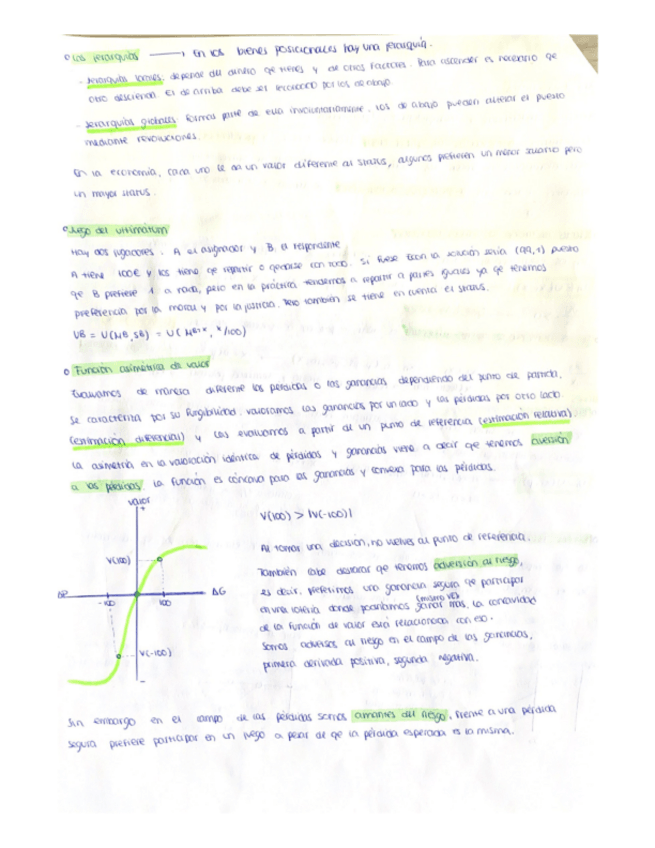 ○ Las jerarquías → En los bienes posicionales hay una jerarquía.
- Jerarquías locales: depende del dinero que tienes y de otros factores. Para ascender es necesario que
otro descienda. El de arriba debe ser reconocido por los de abajo.
- Jerarquías globales: formas parte de ella involuntariamente. Los de abajo pueden alterar el puesto
mediante revoluciones.
En la economía, cada uno le da un valor diferente al status, algunos prefieren un menor salario pero
un mayor status.
○ Juego del ultimátum
Hay dos jugadores. A el asignador y B el respondente
A tiene 100€ y los tiene qe repartir o quedarse con todo. Si fuese la solución sería (99,1) puesto
qe B prefiere 1 a nada, pero en la práctica tendemos a repartir a partes iguales ya qe tenemos
preferencia por la moral y por la justicia. Pero también se tiene en cuenta el status.
UB = U(MB, SB) = U(
○ Función asimétrica de valor
Evaluamos de manera diferente las pérdidas o las ganancias dependiendo del punto de partida.
Se caracteriza por su fungibilidad. valoramos las ganancias por un lado y las pérdidas por otro lado
(estimación diferencial) y las evaluamos a partir de un punto de referencia (estimación relativa).
La asimetría en la valoración idéntica de pérdidas y ganancias viene a decir que tenemos aversión
a las pérdidas. La función es cóncava para las ganancias y convexa para las pérdidas.
valor
+
V(100)
-100
100
ΔG
V(-100)
-
V(100) > |V(-100)|
Al tomar una decisión, no vuelves al punto de referencia.
También cabe destacar qe tenemos adversión al riesgo,
es decir, preferimos una ganancia segura qe participar
en una lotería donde podríamos ganar más. La concavidad
de la función de valor está relacionada con eso.
Somos adversos al riesgo en el campo de las ganancias,
primera derivada positiva, segunda negativa.
Sin embargo en el campo de las pérdidas somos amantes del riesgo, frente a una pérdida
segura prefiere participar en un juego a pesar de qe la pérdida esperada es la misma.